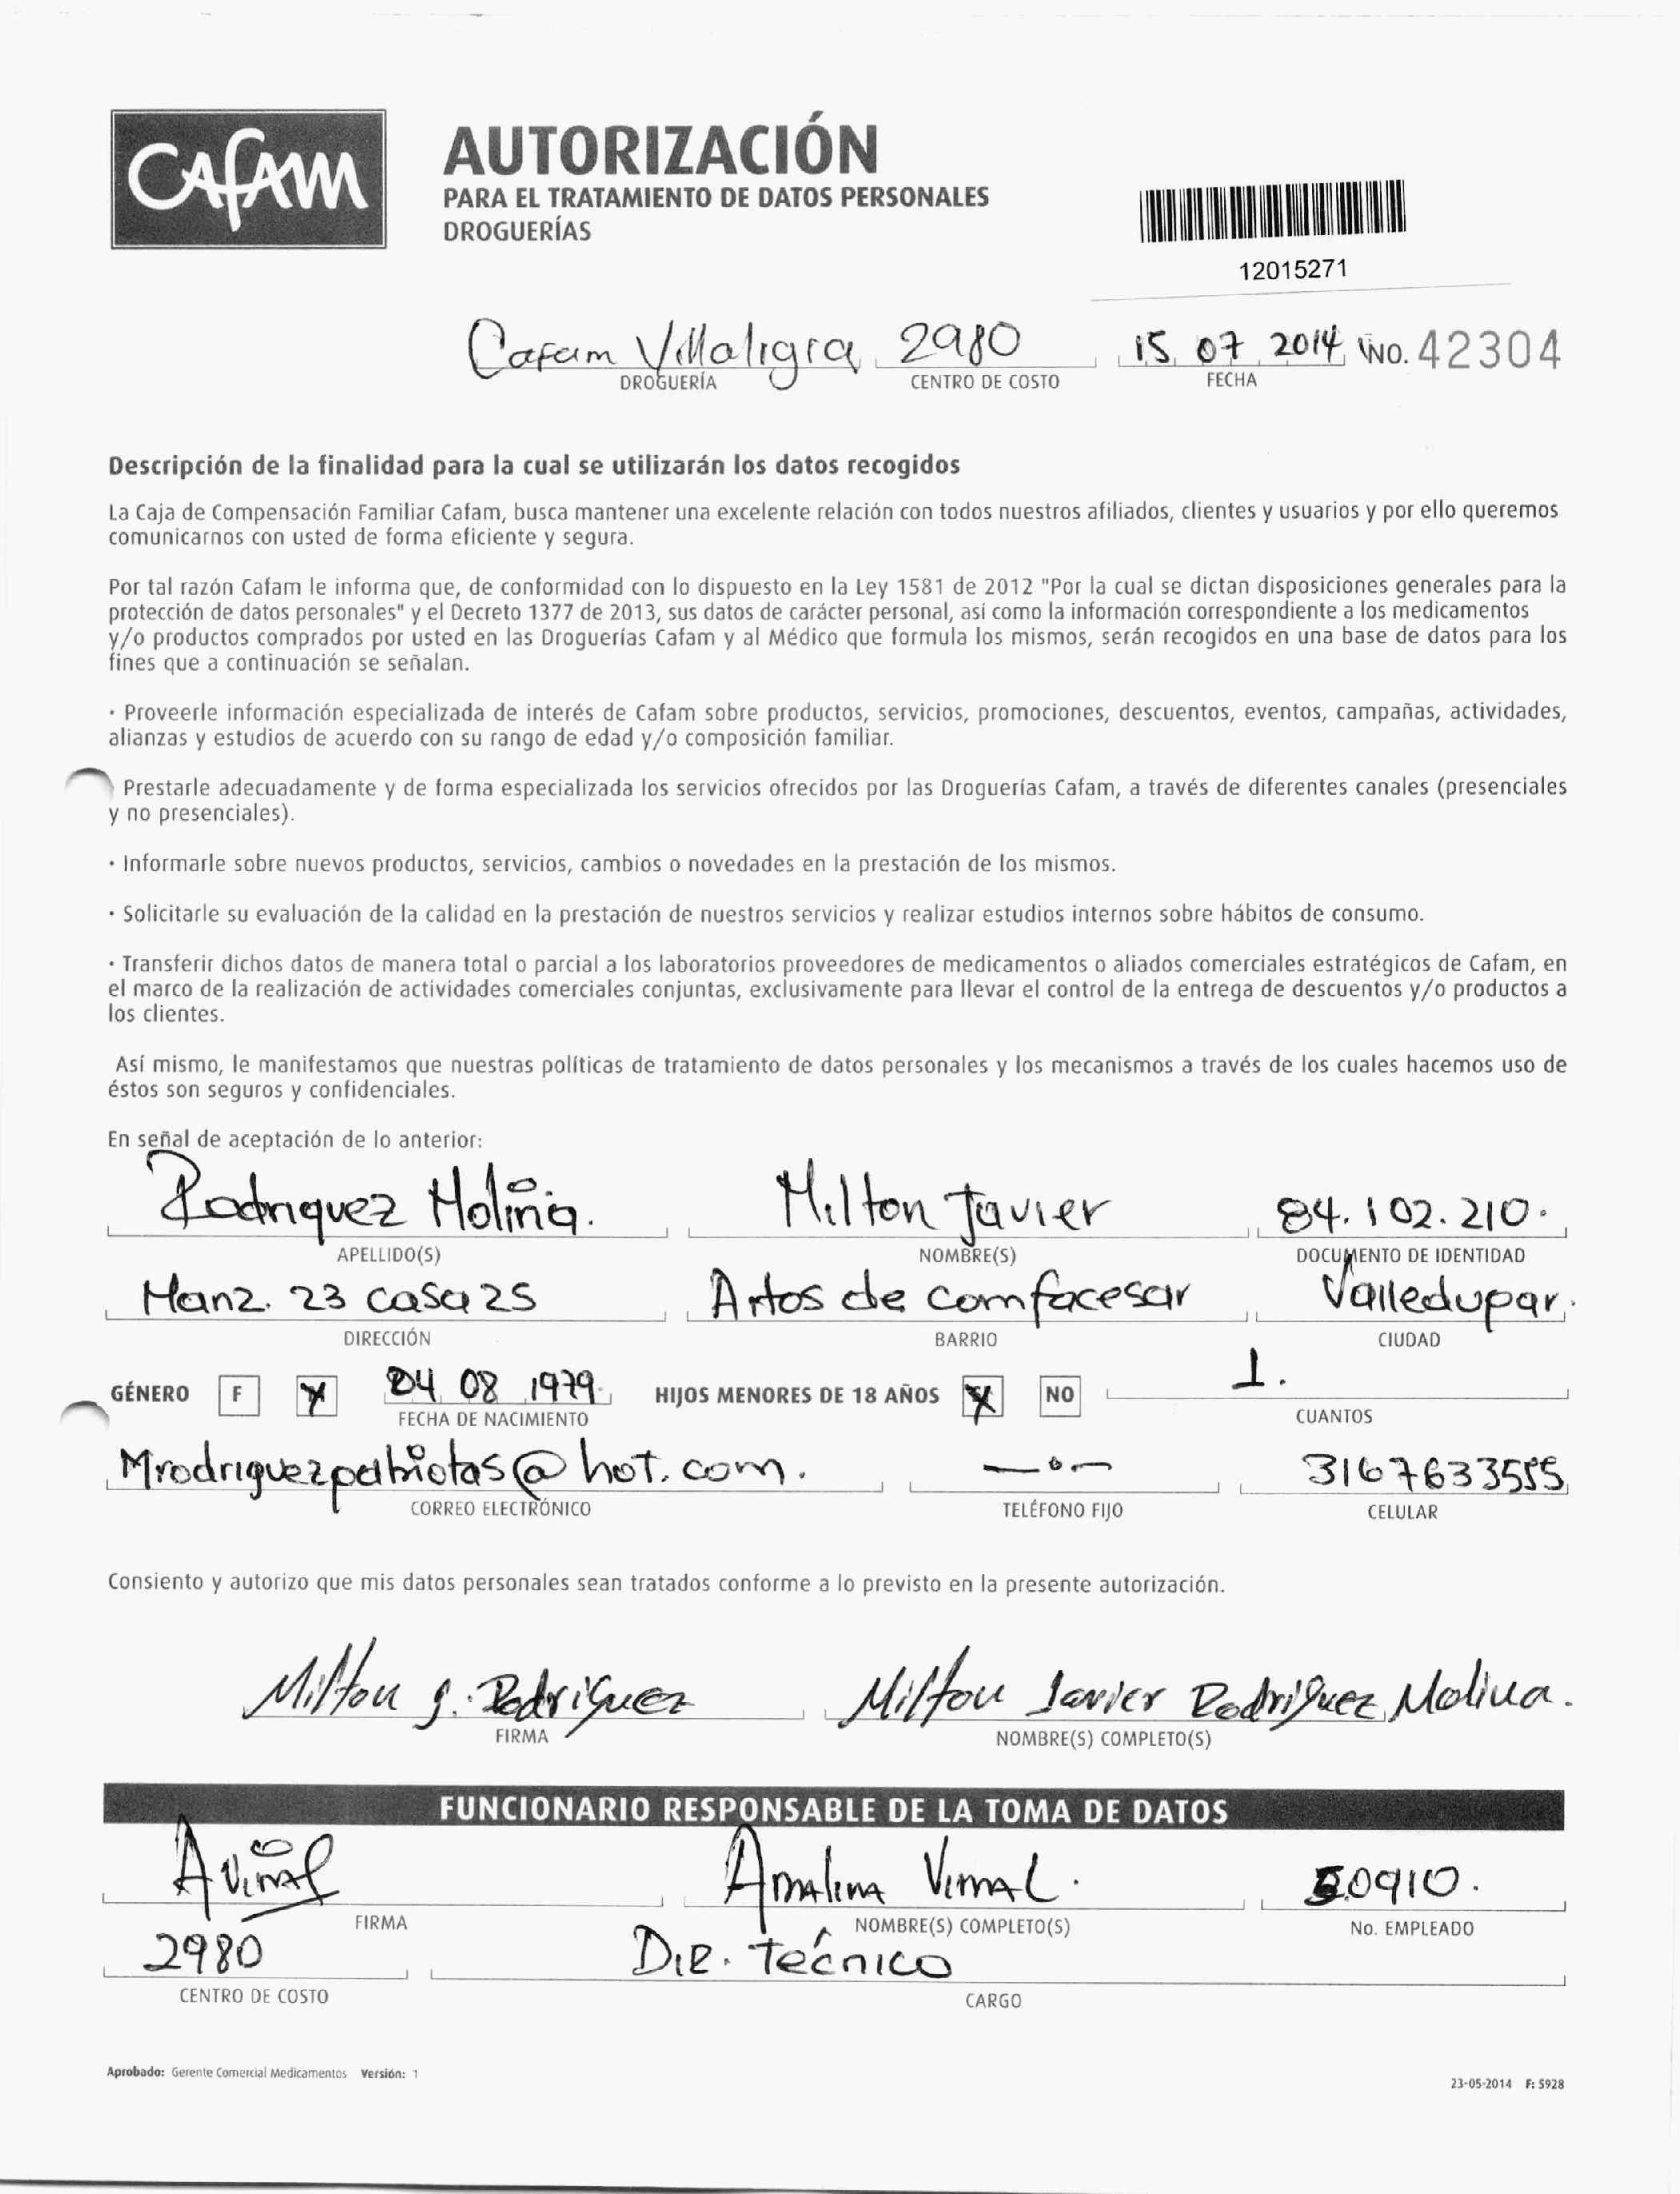 CAFAM
AUTORIZACIÓN
PARA EL TRATAMIENTO DE DATOS PERSONALES
DROGUERÍAS
12015271
Cafam Villaligra 2980 15 07 2014 No. 42304
DROGUERÍA CENTRO DE COSTO FECHA
Descripción de la finalidad para la cual se utilizarán los datos recogidos
La Caja de Compensación Familiar Cafam, busca mantener una excelente relación con todos nuestros afiliados, clientes y usuarios y por ello queremos
comunicarnos con usted de forma eficiente y segura.
Por tal razón Cafam le informa que, de conformidad con lo dispuesto en la Ley 1581 de 2012 "Por la cual se dictan disposiciones generales para la
protección de datos personales" y el Decreto 1377 de 2013, sus datos de carácter personal, así como la información correspondiente a los medicamentos
y/o productos comprados por usted en las Droguerías Cafam y al Médico que formula los mismos, serán recogidos en una base de datos para los
fines que a continuación se señalan.
· Proveerle información especializada de interés de Cafam sobre productos, servicios, promociones, descuentos, eventos, campañas, actividades,
alianzas y estudios de acuerdo con su rango de edad y/o composición familiar.
Prestarle adecuadamente y de forma especializada los servicios ofrecidos por las Droguerías Cafam, a través de diferentes canales (presenciales
y no presenciales).
· Informarle sobre nuevos productos, servicios, cambios o novedades en la prestación de los mismos.
· Solicitarle su evaluación de la calidad en la prestación de nuestros servicios y realizar estudios internos sobre hábitos de consumo.
· Transferir dichos datos de manera total o parcial a los laboratorios proveedores de medicamentos o aliados comerciales estratégicos de Cafam, en
el marco de la realización de actividades comerciales conjuntas, exclusivamente para llevar el control de la entrega de descuentos y/o productos a
los clientes.
Así mismo, le manifestamos que nuestras políticas de tratamiento de datos personales y los mecanismos a través de los cuales hacemos uso de
éstos son seguros y confidenciales.
En señal de aceptación de lo anterior:
Rodriguez Molina. Milton Javier 84.102.210.
APELLIDO(S) NOMBRE(S) DOCUMENTO DE IDENTIDAD
Manz. 23 casa 25 Artos de comfacesar Valledupar.
DIRECCIÓN BARRIO CIUDAD
GÉNERO F X 04 08 1979. HIJOS MENORES DE 18 AÑOS X NO 1.
FECHA DE NACIMIENTO CUANTOS
Mrodriguezpatriotas@hot.com. —o— 3167633555
CORREO ELECTRÓNICO TELÉFONO FIJO CELULAR
Consiento y autorizo que mis datos personales sean tratados conforme a lo previsto en la presente autorización.
Milton J. Rodriguez Milton Javier Rodriguez Molina.
FIRMA NOMBRE(S) COMPLETO(S)
FUNCIONARIO RESPONSABLE DE LA TOMA DE DATOS
AViñal Analina Vimal. 50910.
FIRMA NOMBRE(S) COMPLETO(S) No. EMPLEADO
2980 Dir. Técnico
CENTRO DE COSTO CARGO
Aprobado: Gerente Comercial Medicamentos Versión: 1
23-05-2014 F: 5928